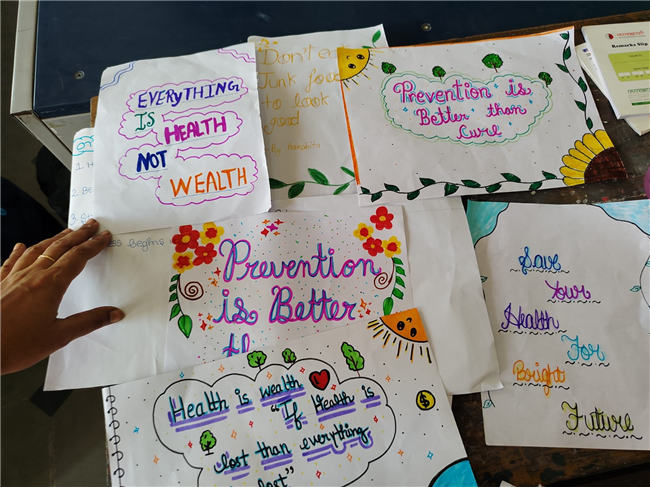 EVERYTHING
IS
HEALTH
NOT
WEALTH
Don't ea
Junk food
to look
good
Prevention is
Better than
Cure
Remarks Slip
Begins
Prevention
is Better
Save
Your
Health
For
Bright
Future
Health is wealth
"If Health is
lost than everything
lost"